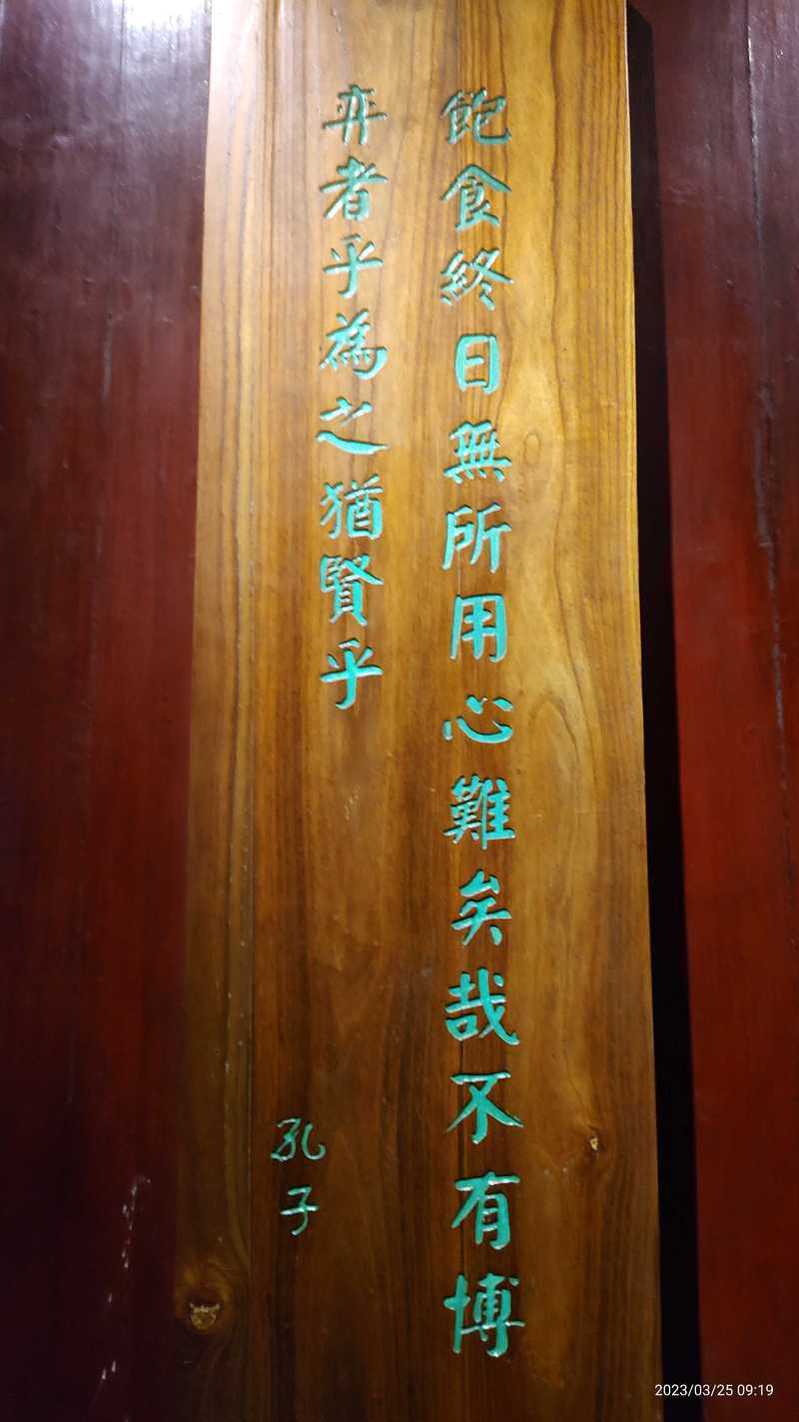 飽食終日無所用心難矣哉不有博
弈者乎為之猶賢乎
孔子
2023/03/25 09:19